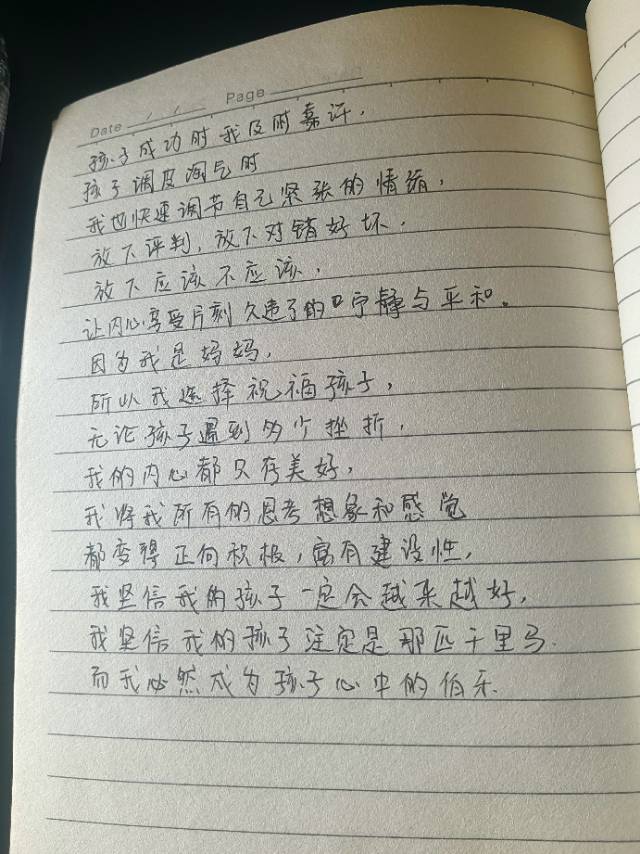 Date / / Page
孩子成功时我及时嘉许,
孩子调皮淘气时
我也快速调节自己紧张的情绪,
放下评判,放下对错好坏,
放下应该不应该,
让内心享受片刻久违了的宁静与平和。
因为我是妈妈,
所以我选择祝福孩子,
无论孩子遇到多少挫折,
我的内心都只存美好,
我将我所有的思考想象和感觉
都变得正向积极,富有建设性,
我坚信我的孩子一定会越来越好,
我坚信我的孩子注定是那匹千里马.
而我必然成为孩子心中的伯乐.